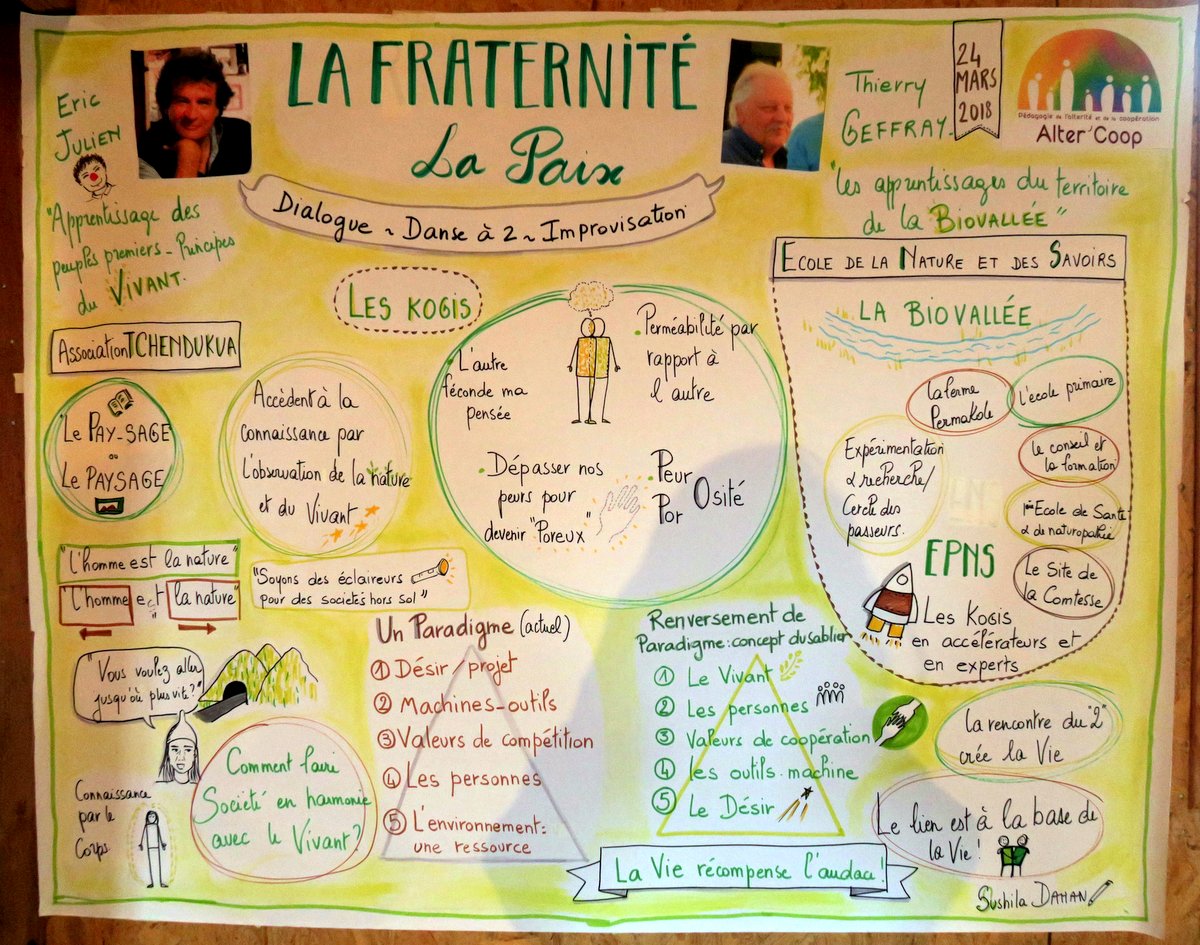 LA FRATERNITÉ
La Paix
Dialogue ~ Danse à 2 ~ Improvisation
Eric
JULIEN
"Apprentissage des
peuples premiers - Principes
du VIVANT.
Thierry
GEFFRAY
24
MARS
2018
Pédagogie de l'altérité et de la coopération
Alter'Coop
"Les apprentissages du territoire
de la BIOVALLÉE"
Association TCHENDUKUA
"Le PAY-SAGE
ou
Le PAYSAGE
LES KOGIS
Accèdent à la
connaissance par
l'observation de la nature
et du Vivant
. L'autre
féconde ma
pensée
. Perméabilité par
rapport à
l'autre
. Dépasser nos
peurs pour
devenir "Poreux"
Peur
Por
Osité
ECOLE DE LA NATURE ET DES SAVOIRS
LA BIOVALLÉE
La ferme
Permakole
l'école primaire
Expérimentation
& recherche/
Cercle des
passeurs.
le conseil et
la formation
1ère Ecole de Santé
& de naturopathie
Le Site de
la Comtesse
EPNS
Les KOGIS
en accélérateurs et
en experts
"L'homme est la nature"
"l'homme e t la nature"
"Soyons des éclaireurs
pour des sociétés hors sol"
"Vous voulez aller
jusqu'où plus vite?"
Connaissance
par le
Corps
Comment faire
Société en harmonie
avec le Vivant?
Un Paradigme (actuel)
1 Désir / projet
2 Machines-outils
3 Valeurs de compétition
4 Les personnes
5 L'environnement:
une ressource
Renversement de
Paradigme: concept du sablier
1 Le Vivant
2 Les personnes
3 Valeurs de coopération
4 les outils-machine
5 Le Désir
La rencontre du "2"
crée la Vie
Le lien est à la base de
la Vie!
La Vie récompense l'audace!
Sushila DAHAN